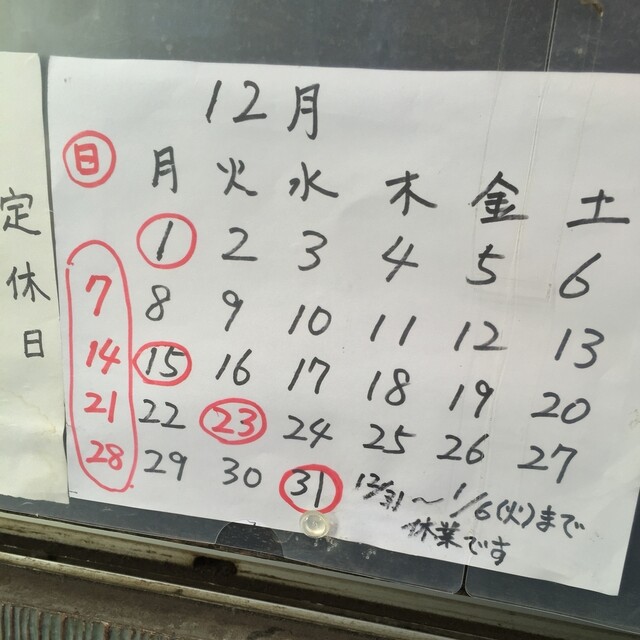 定休日
12月
日 月 火 水 木 金 土
1 2 3 4 5 6
7 8 9 10 11 12 13
14 15 16 17 18 19 20
21 22 23 24 25 26 27
28 29 30 31 12/31〜1/6(火)まで
休業です